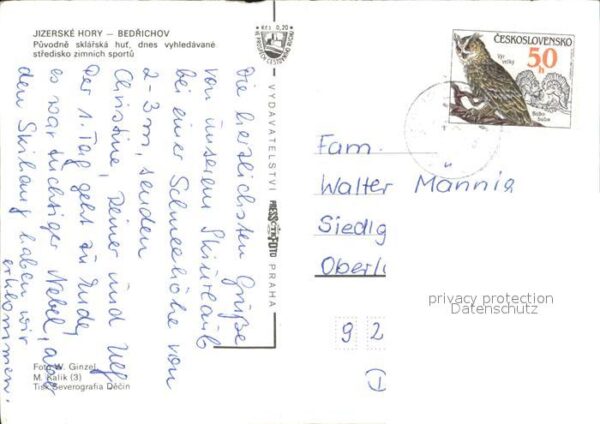 JIZERSKÉ HORY — BEDŘICHOV
Původně sklářská huť, dnes vyhledávané
středisko zimních sportů
Kčs 0,20
Die herzlichsten Grüße
von unserem Skiurlaub
bei einer Schneehöhe von
2-3m, senden
Christine, Reiner und Ulf
Der 1. Tag geht zu Ende,
es war tüchtiger Nebel, aber
den Skihang haben wir
erklommen.
Foto W. Ginzel
M. Kalík (3)
Tisk Severografia Děčín
VYDAVATELSTVÍ PRESSFOTO PRAHA
ČESKOSLOVENSKO
50
h
Výr
velký
Bubo
bubo
Fam.
Walter Männig
Siedlg
Oberl
privacy protection
Datenschutz
9 2